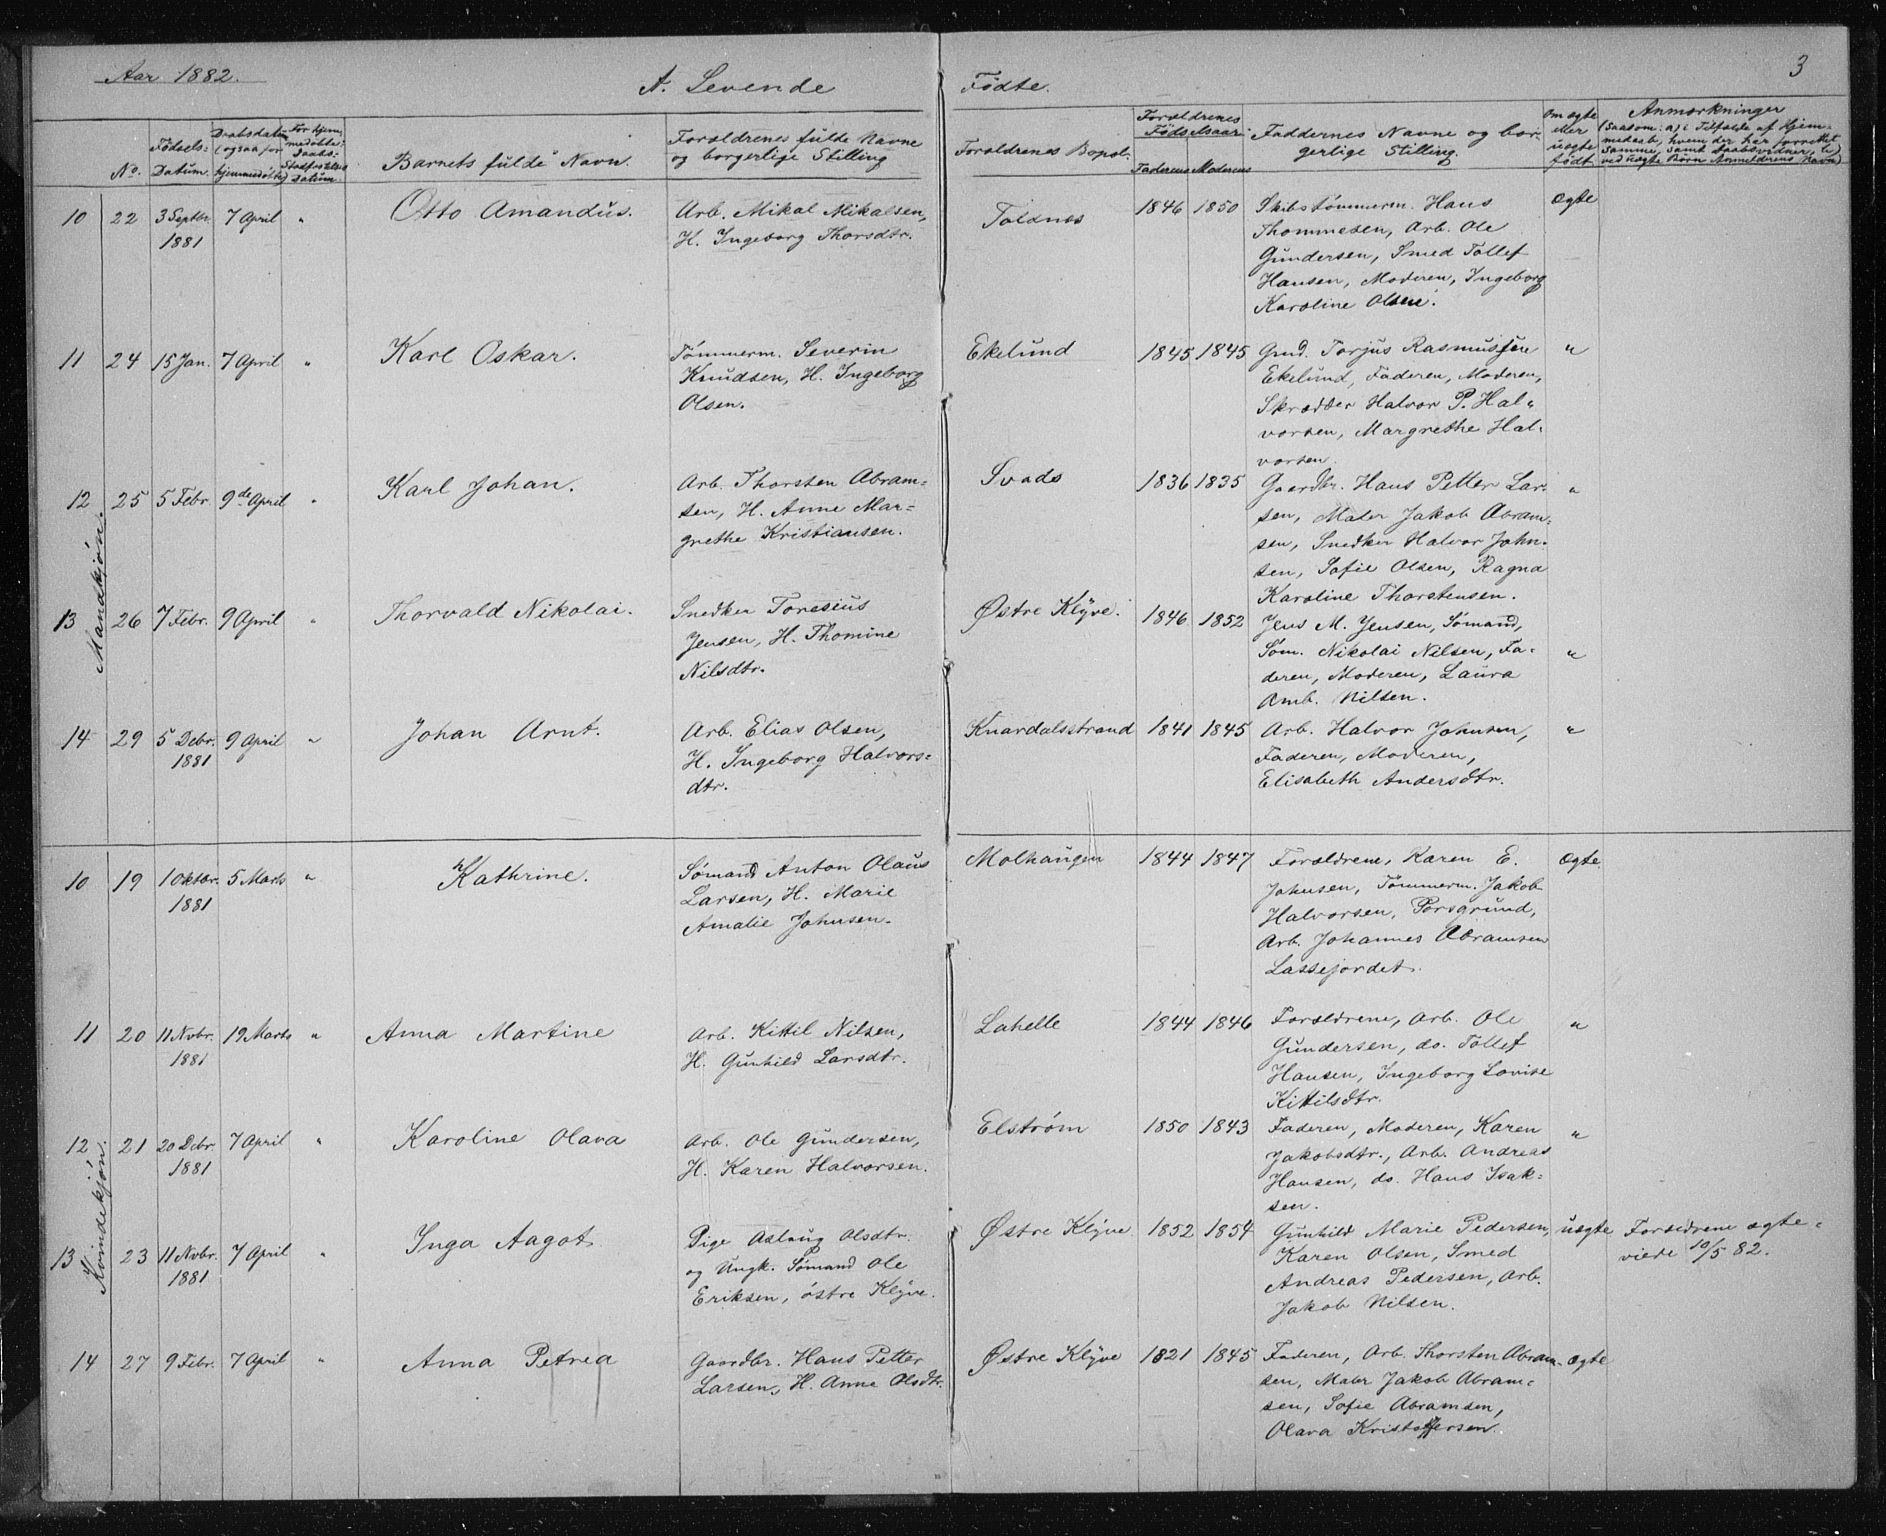 Aar 1882.
A. Levende Fødte.
3
No.
Fødsels-Datum.
Daabsdatum (ogsaa for hjemmedøbte)
For hjemmedøbte: Daabs-Stadfæstelses Datum
Barnets fulde Navn.
Forældrenes fulde Navne og borgerlige Stilling
Forældrenes Bopæl.
Forældrenes Fødselsaar
Faderens Moderens
Faddernes Navne og borgerlige Stilling.
Om ægte eller uægte født
Anmærkninger
Mandkjøn.
10 22 3 Septbr. 7 April "
1881
Otto Amandus.
Arb. Mikal Mikalsen,
H. Ingeborg Thorsdtr.
Toldnes
1846 1850
Skibstømmerm. Hans
Thommesen, Arb. Ole
Gundersen, Smed Tollef
Hansen, Moderen, Ingeborg
Karoline Olsen.
Ægte
11 24 15 Jan. 7 April "
Karl Oskar.
Tømmerm. Severin
Knudsen, H. Ingeborg
Olsen.
Ekelund
1845 1845
Grnd. Torjus Rasmussen
Ekelund, Faderen, Moderen,
Skrædder Halvor P. Hal-
vorsen, Margrethe Hal-
vorsen.
"
12 25 5 Febr. 9de April "
Karl Johan.
Arb. Thorsten Abram-
sen, H. Anne Mar-
grethe Kristiansen.
Svads
1836 1835
Gaardbr. Hans Petter Lar-
sen, Maler Jakob Abram-
sen, Snedker Halvor John-
sen, Sofie Olsen, Ragna
Karoline Thorstensen.
"
13 26 7 Febr. 9 April "
Thorvald Nikolai.
Snedker Toresius
Jensen, H. Thomine
Nilsdtr.
Østre Klyve.
1846 1852
Jens M. Jensen, Sømand,
Søm. Nikolai Nilsen, Fa-
deren, Moderen, Laura
Amb. Nilsen.
"
14 29 5 Debr. 9 April "
1881
Johan Arnt.
Arb. Elias Olsen,
H. Ingeborg Halvors-
dtr.
Knardalsstrand
1841 1845
Arb. Halvor Johnsen,
Faderen, Moderen,
Elisabeth Andersdtr.
"
Kvindekjøn.
10 19 1 Oktbr. 5 Marts "
1881
Kathrine.
Sømand Anton Olaus
Larsen, H. Marie
Amalie Johnsen.
Molhaugen
1844 1847
Forældrene, Karen E.
Johnsen, Tømmerm. Jakob
Halvorsen, Porsgrund,
Arb. Johannes Abramsen
Lassejordet.
Ægte.
11 20 11 Novbr. 19 Marts "
1881
Anna Martine
Arb. Kittil Nilsen,
H. Gunhild Larsdtr.
Lahelle
1844 1846
Forældrene, Arb. Ole
Gundersen, do. Tollef
Hansen, Ingeborg Lovise
Kittilsdtr.
"
12 21 20 Debr. 7 April "
1881
Karoline Olava
Arb. Ole Gundersen,
H. Karen Halvorsen.
Elstrøm
1850 1843
Faderen, Moderen, Karen
Jakobsdtr., Arb. Andreas
Hansen, do. Hans Isak-
sen.
"
13 23 11 Novbr. 7 April "
1881
Inga Aagot
Pige Aslaug Olsdtr.
og Ungk. Sømand Ole
Eriksen, østre Klyve.
Østre Klyve
1852 1854
Gunhild Marie Pedersen,
Karen Olsen, Smed
Andreas Pedersen, Arb.
Jakob Nilsen.
uægte
Forældrene ægte-
viede 10/5 82.
14 27 9 Febr. 7 April "
Anna Petrea
Gaardbr. Hans Petter
Larsen, H. Anne Olsdtr.
Østre Klyve
1821 1845
Faderen, Arb. Thorsten Abram-
sen, Maler Jakob Abram-
sen, Sofie Abramsen,
Olava Kristoffersen.
ægte